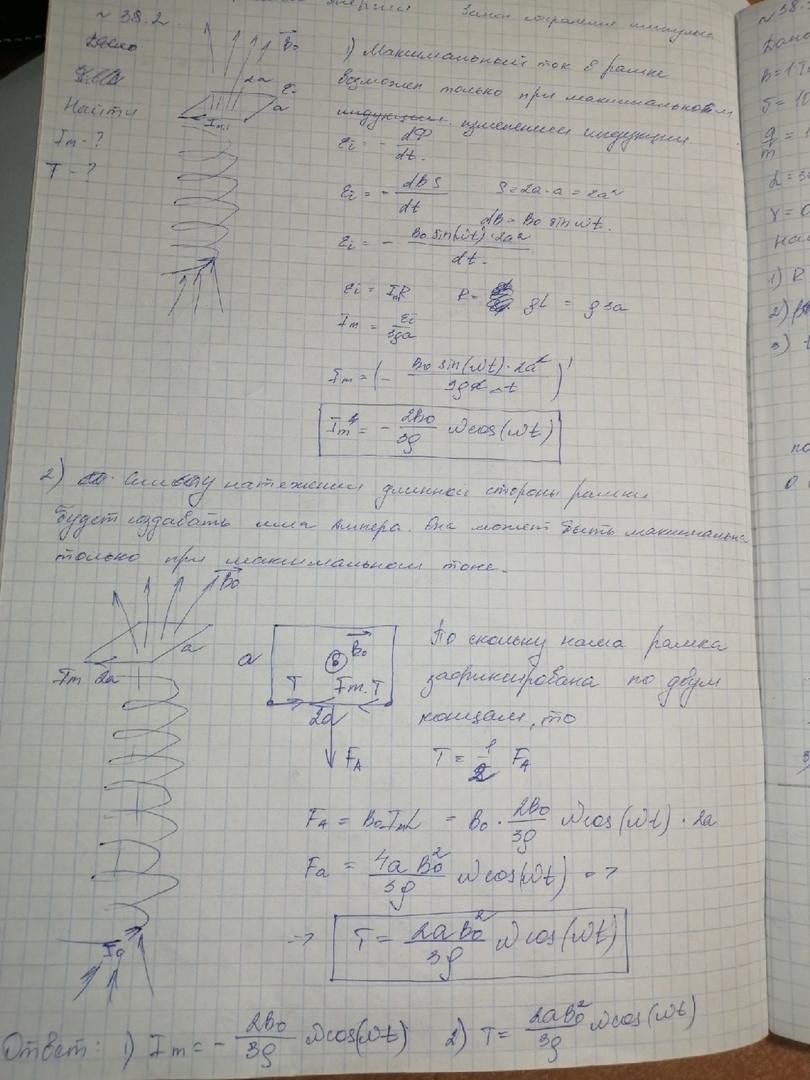 энергии Закон сохранения импульса
№ 38.2.
Дано
Найти
Im - ?
T - ?
B₀
2a
a
Im
1) Максимальный ток в рамке
возможен только при максимальном
изменении индукции.
εi = - dФ/dt.
εi = - dBS/dt S = 2a·a = 2a²
dB = B₀ sin ωt.
εi = - B₀ sin(ωt)·2a²/dt.
εi = ImR R = ρL = ρ3a
Im = εi/3ρa
Im = (- B₀ sin(ωt)·2a²/3ρa Δt)'
Im = - 2B₀/3ρ ω cos(ωt)
2) Силу натяжения длинной стороны рамки
будет создавать сила Ампера. Она может быть максимальна
только при максимальном токе.
B₀
a
Im 2a
a
B₀
T Im T
2a
FA
Поскольку наша рамка
зафиксирована по двум
концам, то
T = 1/2 FA
FA = B₀ImL = B₀ · 2B₀/3ρ ω cos(ωt) · 2a
Fa = 4aB₀²/3ρ ω cos(ωt) =>
=> T = 2aB₀²/3ρ ω cos(ωt)
I₀
Ответ: 1) Im = - 2B₀/3ρ ω cos(ωt) 2) T = 2aB₀²/3ρ ω cos(ωt)
№38.
Дано
B = 1
α = 3
1) R
2)
3)